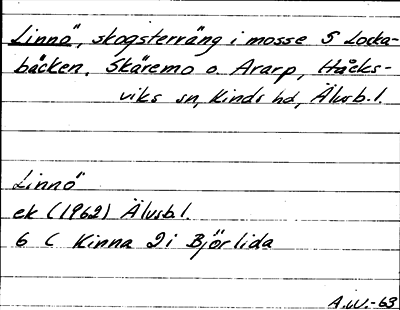 Linnö, skogsterräng i mosse S Locka-
bäcken. Skäremo o. Ararp, Håcks-
viks sn, Kinds hd, Älvsb. l.
Linnö
ek (1962) Älvsb l.
6 C Kinna 2 i Björlida
A.W.-63